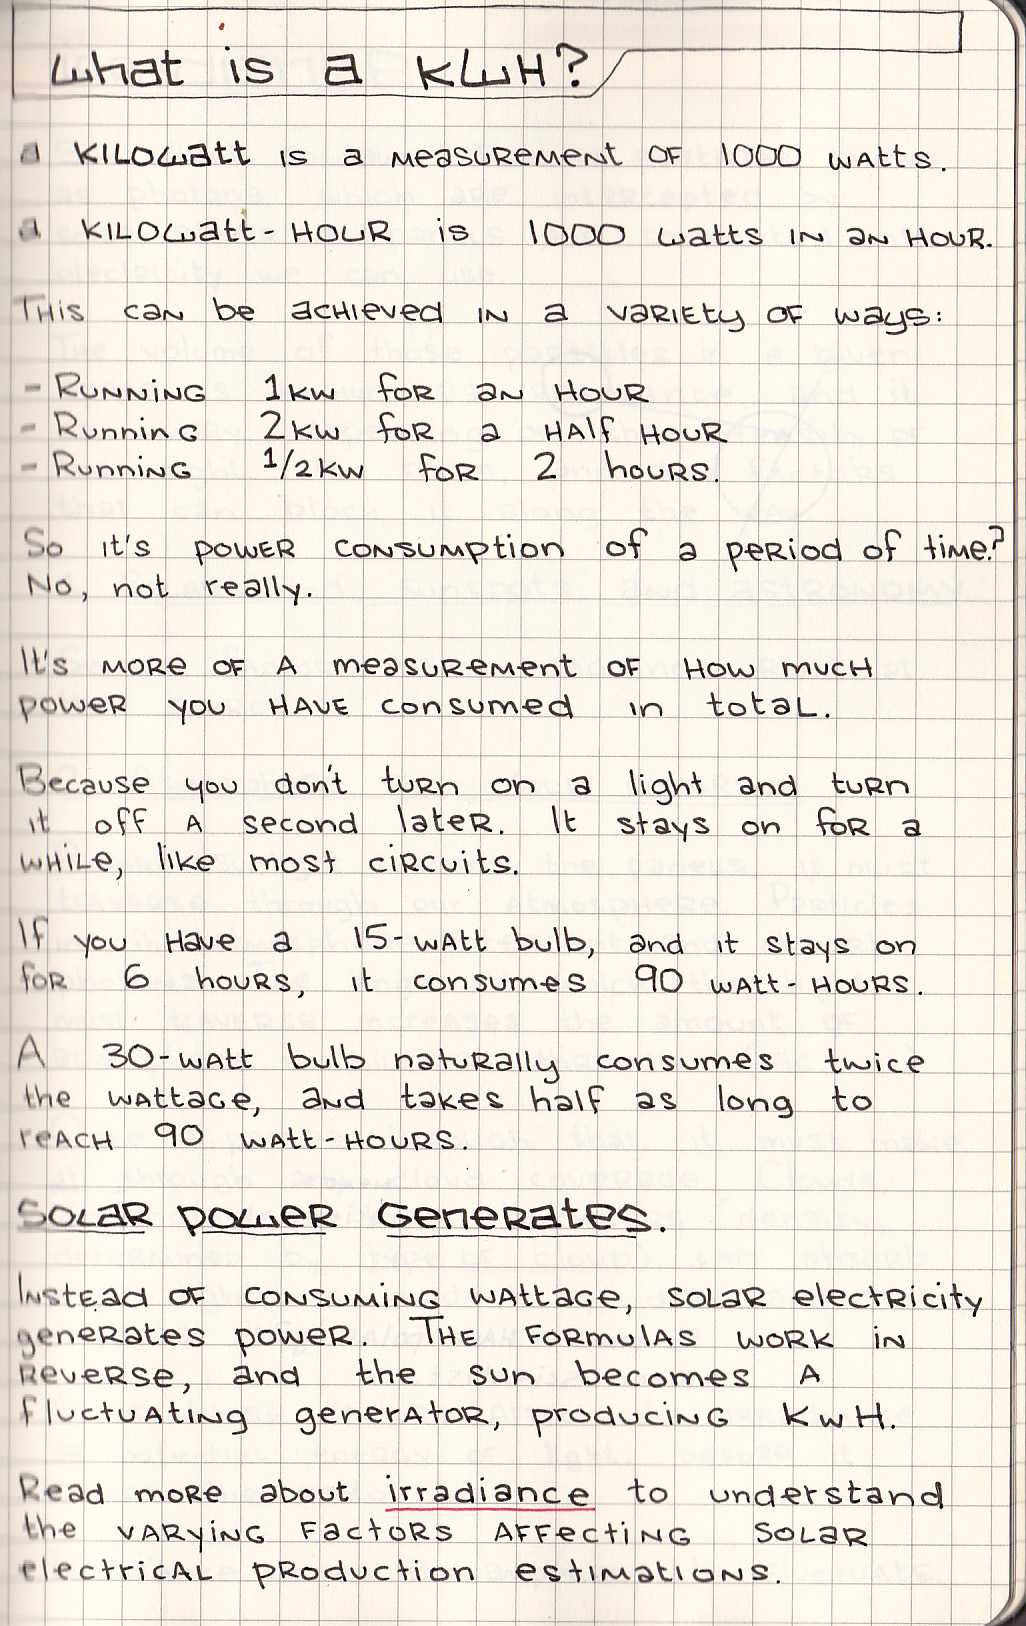 What is a KWH?
a KILOWatt is a measurement of 1000 watts.
a KILOWatt-Hour is 1000 watts in an hour.
This can be achieved in a variety of ways:
- Running 1kw for an hour
- Running 2kw for a half hour
- Running 1/2kw for 2 hours.
So it's power consumption of a period of time?
No, not really.
It's more of a measurement of how much
power you have consumed in total.
Because you don't turn on a light and turn
it off a second later. It stays on for a
while, like most circuits.
If you have a 15-watt bulb, and it stays on
for 6 hours, it consumes 90 watt-hours.
A 30-watt bulb naturally consumes twice
the wattage, and takes half as long to
reach 90 watt-hours.
Solar power Generates.
Instead of consuming wattage, solar electricity
generates power. The formulas work in
reverse, and the sun becomes a
fluctuating generator, producing KWH.
Read more about irradiance to understand
the varying factors affecting solar
electrical production estimations.